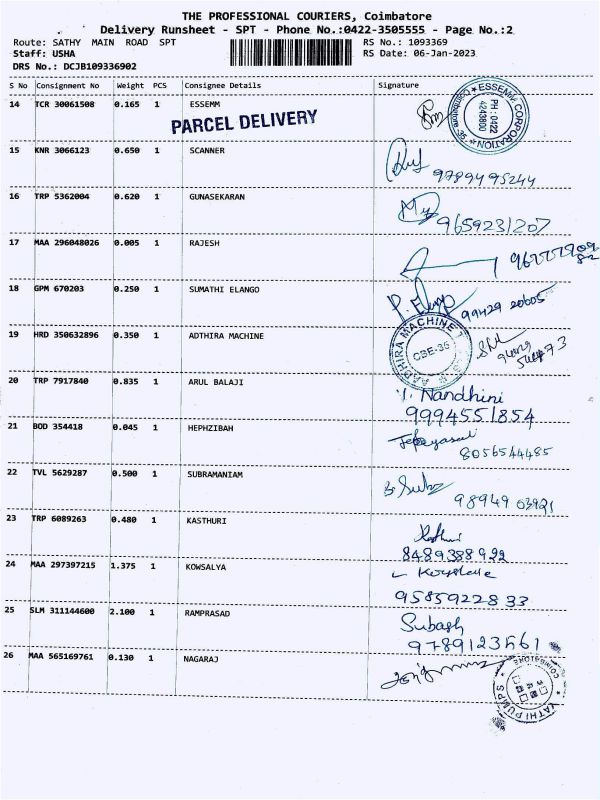 THE PROFESSIONAL COURIERS, Coimbatore
Delivery Runsheet - SPT - Phone No.:0422-3505555 - Page No.:2
Route: SATHY MAIN ROAD SPT RS No.: 1093369
Staff: USHA RS Date: 06-Jan-2023
DRS No.: DCJB109336902
S No Consignment No Weight PCS Consignee Details Signature
14 TCR 30061508 0.165 1 ESSEMM
ESSEMM CORPORATION Coimbatore-35 PH : 0422 4243800
PARCEL DELIVERY
15 KNR 3066123 0.650 1 SCANNER
9789495244
16 TRP 5362004 0.620 1 GUNASEKARAN
9659231207
17 MAA 296048026 0.005 1 RAJESH
18 GPM 670203 0.250 1 SUMATHI ELANGO
P. Elango 99429 20605
19 HRD 350632896 0.350 1 ADTHIRA MACHINE
AADHIRA MACHINE CBE-35
20 TRP 7917840 0.835 1 ARUL BALAJI
Nandhini
9994551854
21 BOD 354418 0.045 1 HEPHZIBAH
8056544485
22 TVL 5629287 0.500 1 SUBRAMANIAM
98949 03921
23 TRP 6089263 0.480 1 KASTHURI
8489388922
24 MAA 297397215 1.375 1 KOWSALYA
9585922833
25 SLM 311144600 2.100 1 RAMPRASAD
Subash
9789123561
26 MAA 565169761 0.130 1 NAGARAJ
COIMBATORE PUMPS